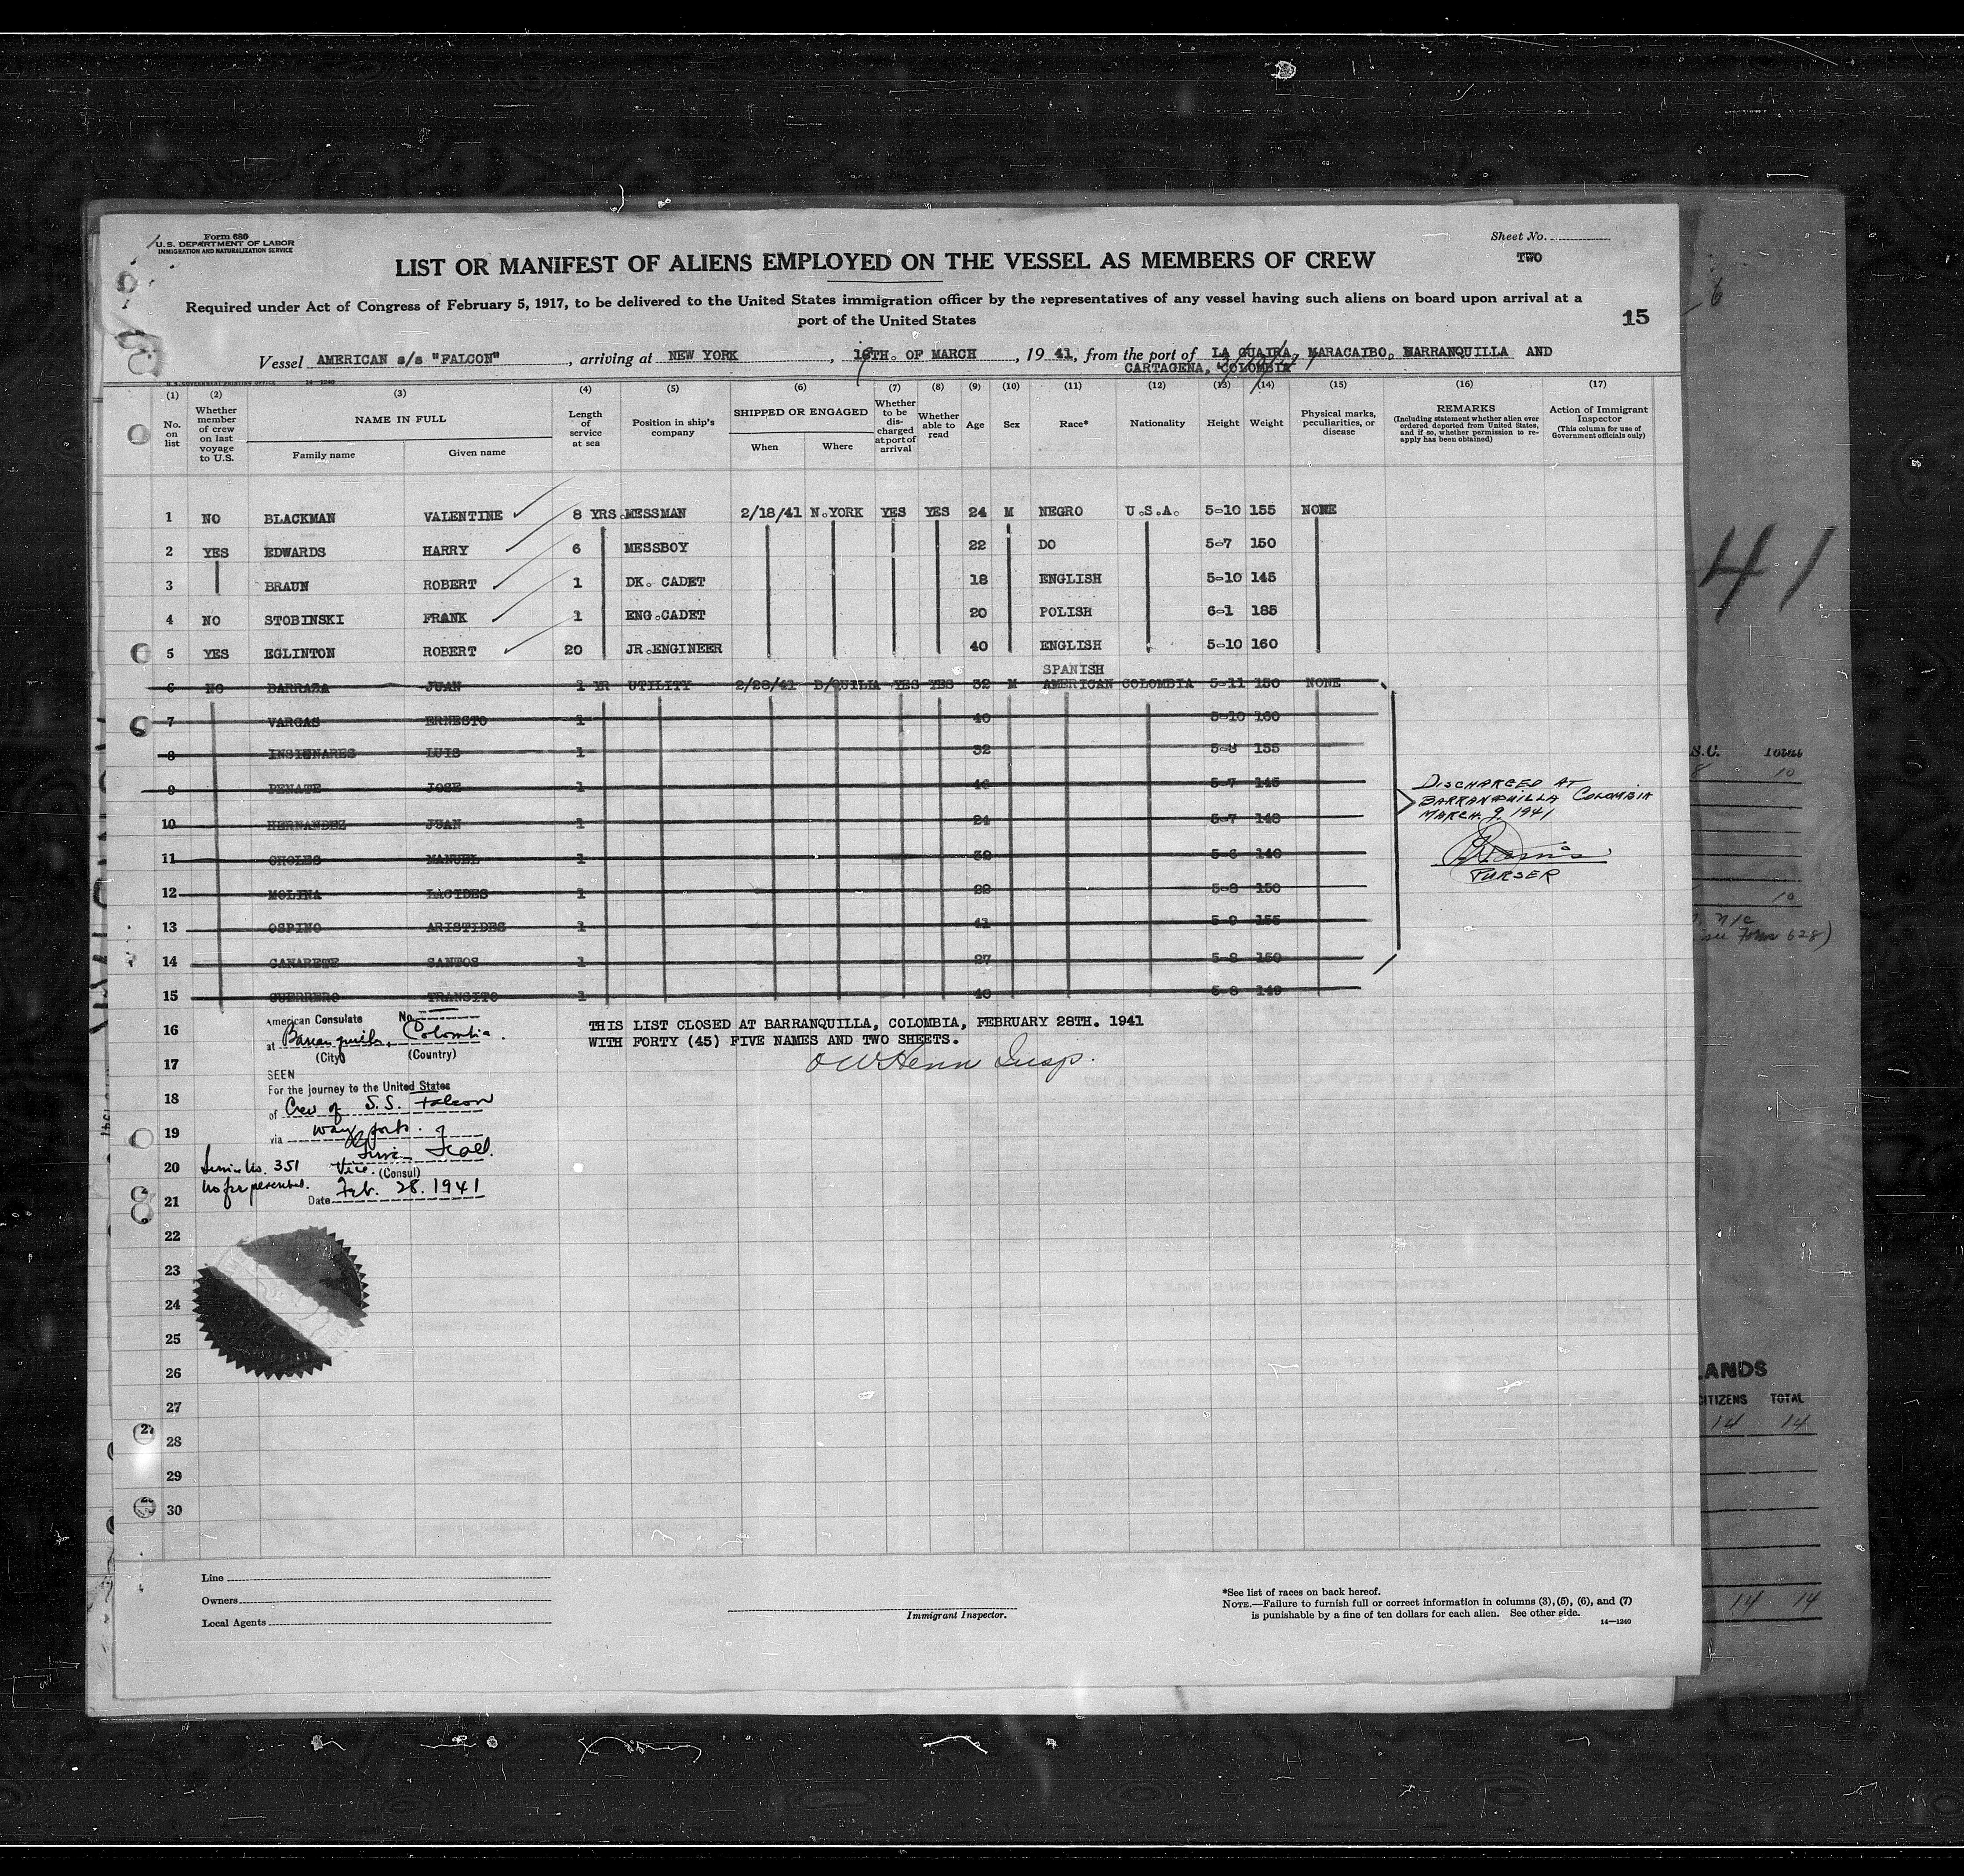 Form 680
U. S. DEPARTMENT OF LABOR
IMMIGRATION AND NATURALIZATION SERVICE
Sheet No.
TWO
LIST OR MANIFEST OF ALIENS EMPLOYED ON THE VESSEL AS MEMBERS OF CREW
Required under Act of Congress of February 5, 1917, to be delivered to the United States immigration officer by the representatives of any vessel having such aliens on board upon arrival at a
port of the United States
15
Vessel AMERICAN s/s "FALCON", arriving at NEW YORK, 16TH. OF MARCH, 19 41, from the port of LA GUAIRA, MARACAIBO, BARRANQUILLA AND
CARTAGENA, COLOMBIA
U. S. GOVERNMENT PRINTING OFFICE 14—1240
(1) (2) (3) (4) (5) (6) (7) (8) (9) (10) (11) (12) (13) (14) (15) (16) (17)
No. on list
Whether member of crew on last voyage to U.S.
NAME IN FULL
Family name Given name
Length of service at sea
Position in ship's company
SHIPPED OR ENGAGED
When Where
Whether to be discharged at port of arrival
Whether able to read
Age Sex Race* Nationality Height Weight
Physical marks, peculiarities, or disease
REMARKS
(Including statement whether alien ever ordered deported from United States, and if so, whether permission to reapply has been obtained)
Action of Immigrant Inspector
(This column for use of Government officials only)
1 NO BLACKMAN VALENTINE 8 YRS. MESSMAN 2/18/41 N.YORK YES YES 24 M NEGRO U.S.A. 5-10 155 NONE
2 YES EDWARDS HARRY 6 MESSBOY 22 DO 5-7 150
3 BRAUN ROBERT 1 DK. CADET 18 ENGLISH 5-10 145
4 NO STOBINSKI FRANK 1 ENG.CADET 20 POLISH 6-1 185
5 YES EGLINTON ROBERT 20 JR.ENGINEER 40 ENGLISH 5-10 160
SPANISH
6 NO BARRAZA JUAN 1 YR UTILITY 2/28/41 B/QUILLA YES YES 32 M AMERICAN COLOMBIA 5-11 150 NONE
7 VARGAS ERNESTO 1 40 5-10 160
8 INSIGNARES LUIS 1 32 5-8 155
9 PENATE JOSE 1 46 5-7 145
10 HERNANDEZ JUAN 1 24 5-7 148
11 CHOLES MANUEL 1 38 5-6 140
12 MOLINA LACIDES 1 22 5-8 150
13 OSPINO ARISTIDES 1 41 5-9 155
14 CANARETE SANTOS 1 27 5-8 150
15 GUERRERO TRANSITO 1 40 5-8 149
DISCHARGED AT
BARRANQUILLA COLOMBIA
MARCH 9 1941
PURSER
16
17
18
19
20
21
22
23
24
25
26
27
28
29
30
American Consulate No.
at Barranquilla, Colombia.
(City) (Country)
SEEN
For the journey to the United States
of Crew of S.S. Falcon
via way ports.
Vice (Consul)
Date Feb. 28. 1941
Service No. 351
No fee prescribed.
THIS LIST CLOSED AT BARRANQUILLA, COLOMBIA, FEBRUARY 28TH. 1941
WITH FORTY (45) FIVE NAMES AND TWO SHEETS.
O W Henn Insp.
Line
Owners
Local Agents
Immigrant Inspector.
*See list of races on back hereof.
NOTE.—Failure to furnish full or correct information in columns (3), (5), (6), and (7)
is punishable by a fine of ten dollars for each alien. See other side.
14—1240
6
41
S.C. Total
8 10
10
n/c
see Form 628)
LANDS
CITIZENS TOTAL
14 14
14 14